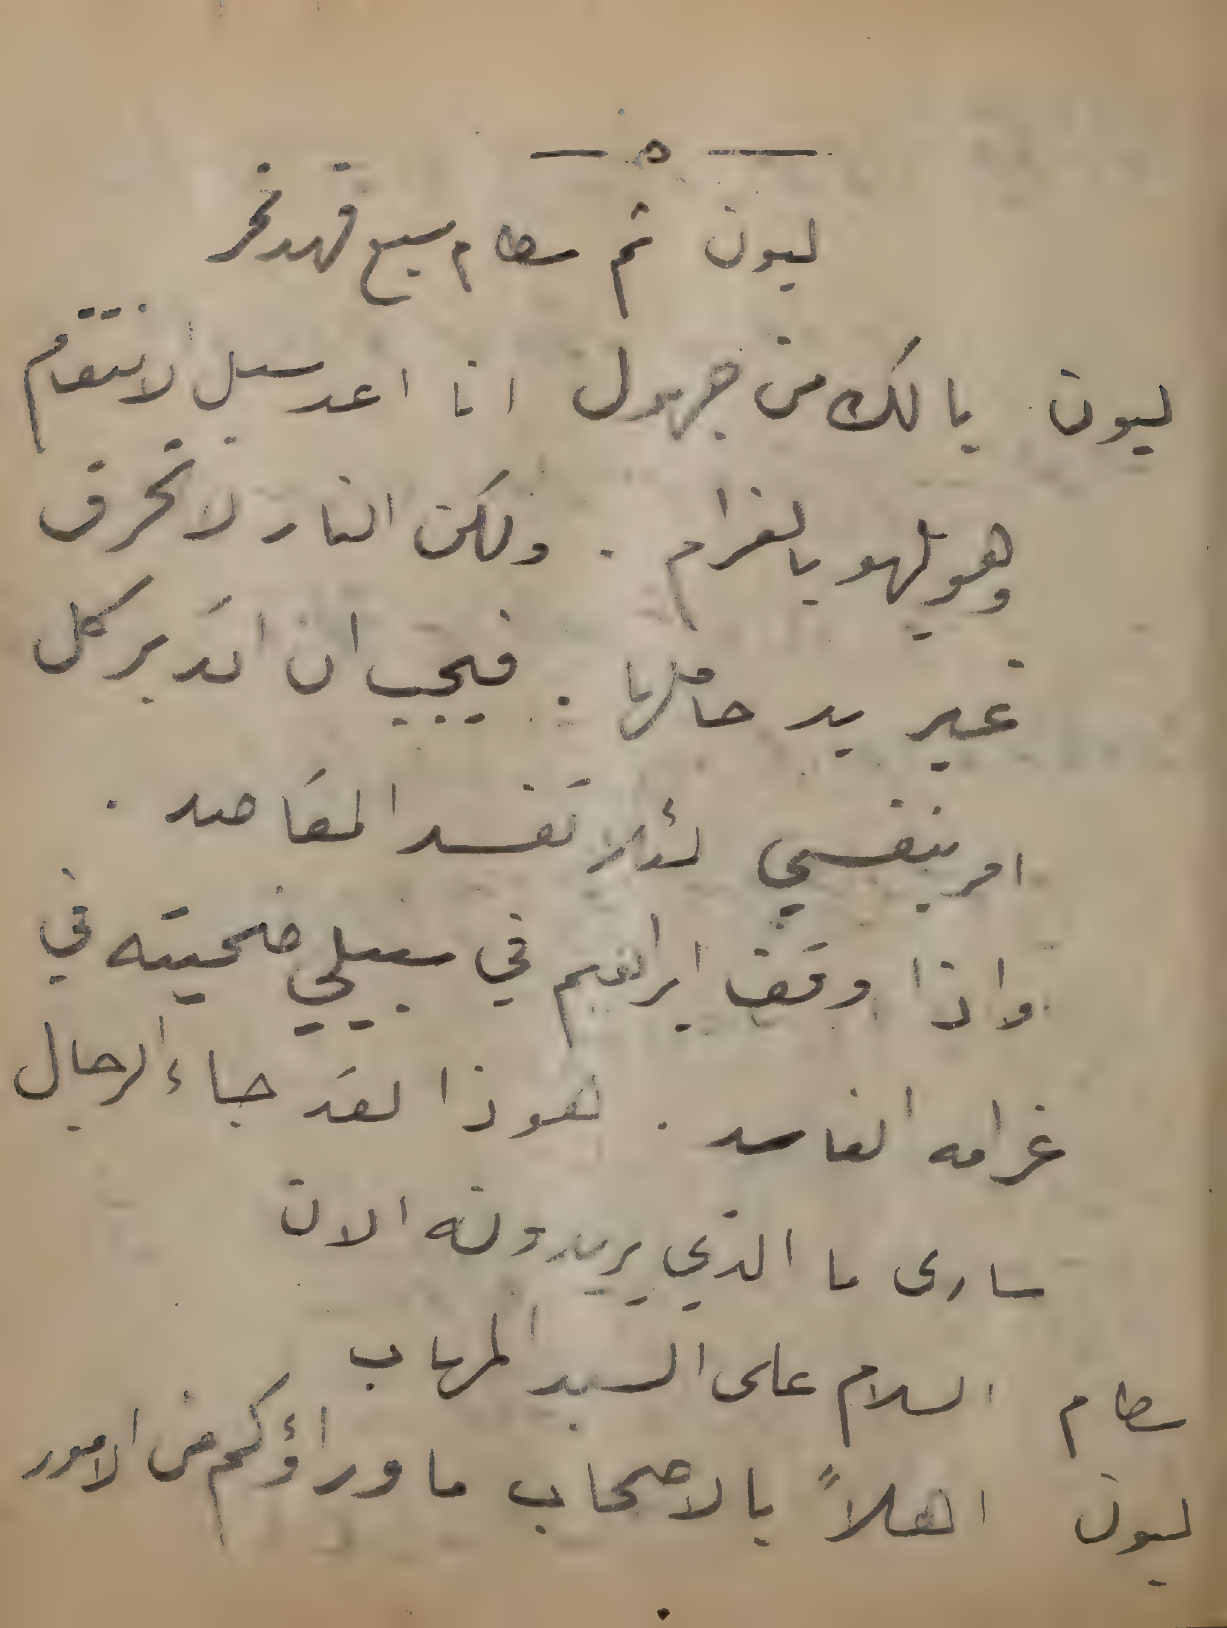 — ٥ —
ليون ثم سطام سبع فهد فخر
ليون يا لك من جهول انا اعد سبل الانتقام
وهو يلهو بالغرام . ولكن النار لا تحرق
غير يد حاملها . فيجب ان اتدبر كل
امر بنفسي لئلا تفسد المقاصد .
واذا وقف ابراهيم في سبيلي ضحيته في
غرامه الفاسد . هوذا لقد جاء الرجال
سارى ما الذي يريدونه الان
سطام السلام على السيد المهاب
ليون اهلاً بالاصحاب ما وراؤكم من الامور